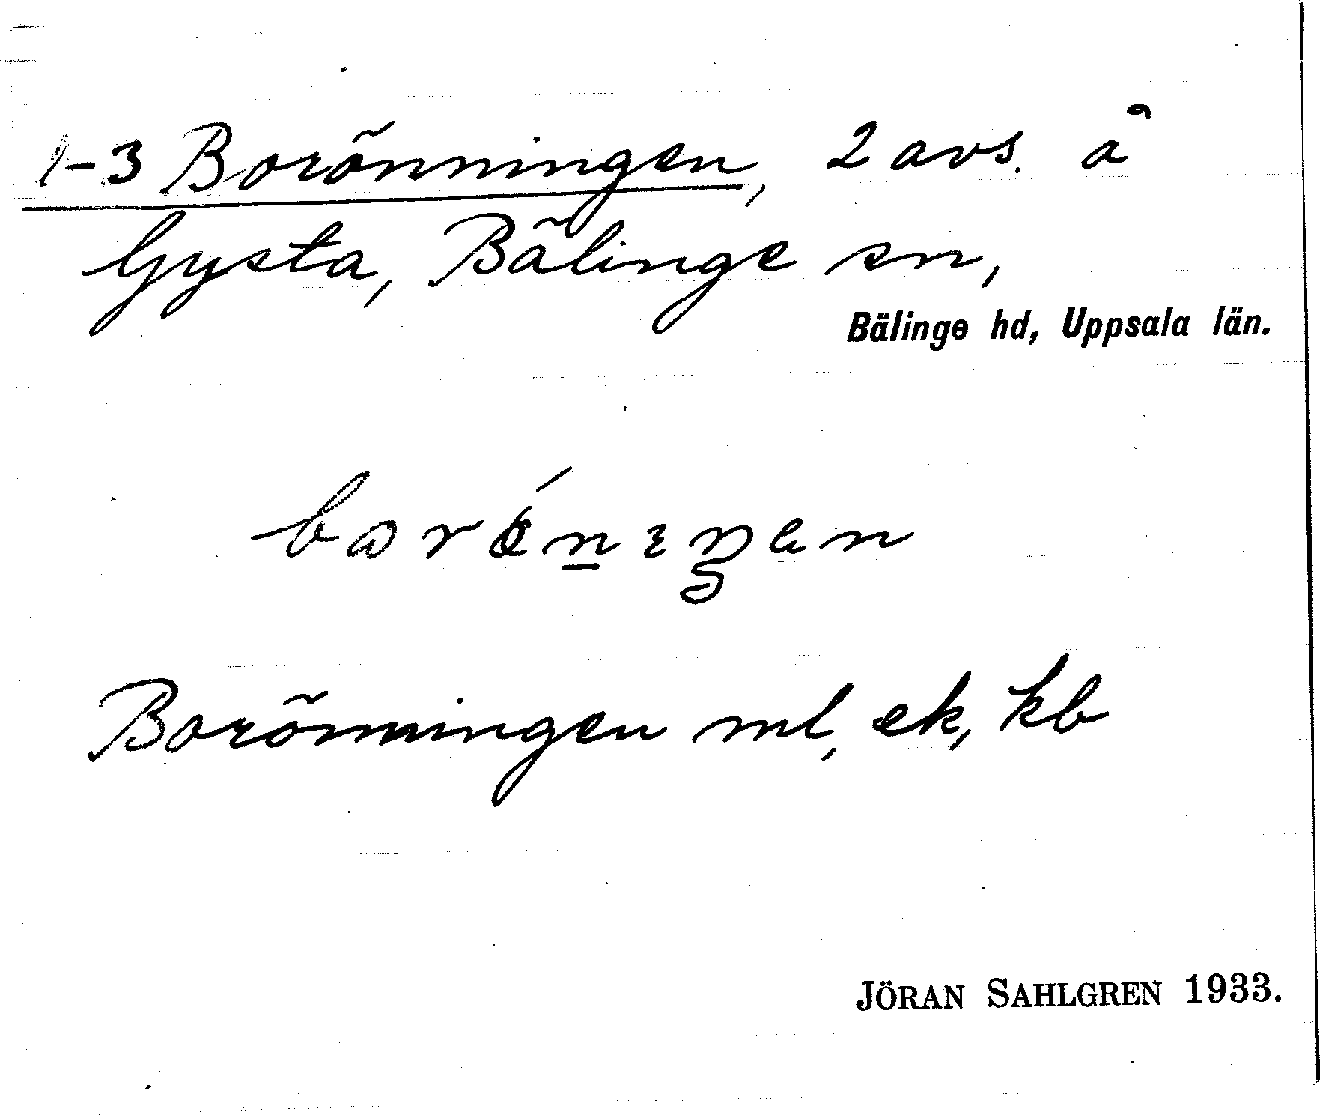 1-3 Borönningen, 2 avs. å
Gysta, Bälinge sn,
Bälinge hd, Uppsala län.
Borönningen ml, ek, kb
JÖRAN SAHLGREN 1933.